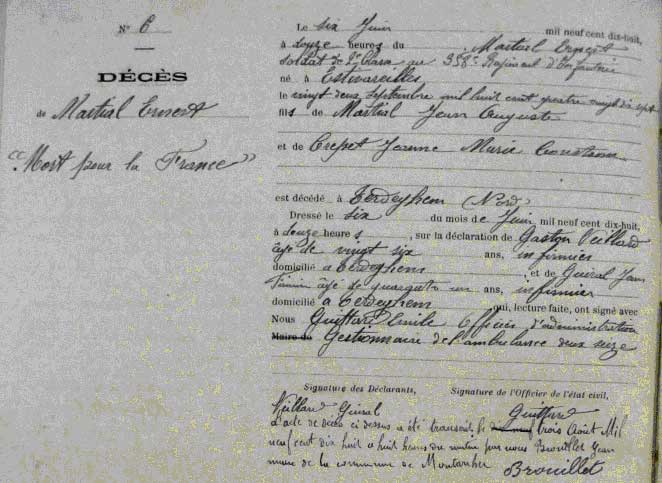 N° 6
DÉCÈS
de Martial Ernest
"Mort pour la France"
Le six Juin mil neuf cent dix-huit,
à douze heures du Martial Ernest
soldat de 2e Classe au 358e Régiment d'Infanterie
né à Estivareilles,
le vingt deux septembre mil huit cent quatre vingt dix sept
fils de Martial Jean Auguste
et de Crepet Jeanne Marie
est décédé à Terdeghem (Nord)
Dressé le six du mois de Juin mil neuf cent dix-huit,
à douze heures, sur la déclaration de Gaston Veillard
âgé de vingt six ans, infirmier
domicilié à Terdeghem, et de Guiral Jean
âgé de quarante un ans, infirmier
domicilié à Terdeghem qui, lecture faite, ont signé avec
Nous Guittard Emile Officier d'administration
Maire de Gestionnaire de l'ambulance deux seize
Signature des Déclarants, Signature de l'Officier de l'état civil,
Veillard Guiral Guittard
L'acte de décès ci dessus a été transcrit le trois Août Mil
neuf cent dix huit à huit heures du matin par nous Brouillet Jean
maire de la commune de
Brouillet